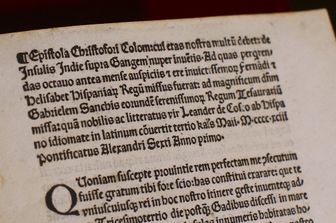 ¶Epistola Christofori Colom: cui etas nostra multū debet: de
Insulis Indie supra Gangem nuper inuētis. Ad quas perqren
das octauo antea mense auspiciis ⁊ ere inuictissemoꝝ Fernādi ⁊
Helisabet Hispaniaꝝ Regū missus fuerat: ad magnificum dñm
Gabrielem Sanchis eorundē serenissimoꝝ Regum Tesaurariū
missa: quā nobilis ac litteratus vir Leander de Cosco ab Hispa
no idiomate in latinum cōuertit tertio kal's Maii. M.cccc.xciii
Pontificatus Alexandri Sexti Anno primo.
QUoniam suscepte prouintie rem perfectam me ↄsecutum
fuisse gratum tibi fore scio: has constitui exarare: que te
vniuscuiusꝗ rei in hoc nostro itinere geste inuenteꝗ ad-
Tricesimotertio die postꝗ Gadibus discessi in mare